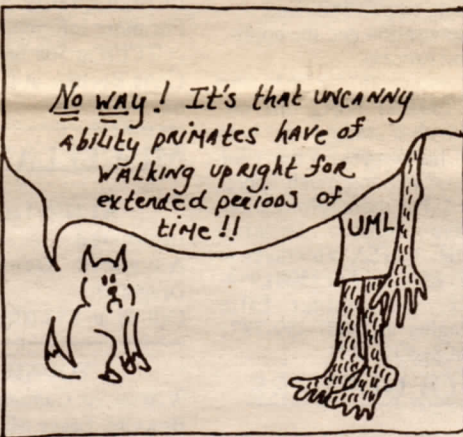 No way! It's that uncanny
ability primates have of
walking upright for
extended periods of
time!!
UML